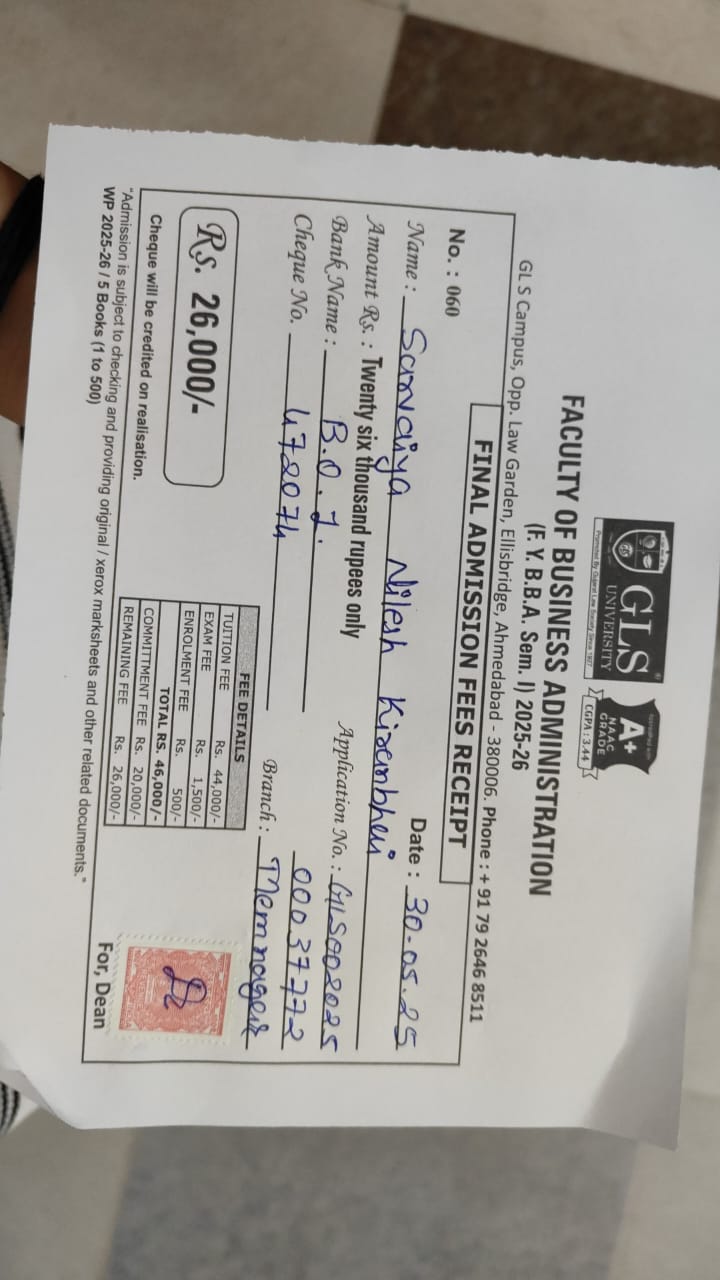 GLS
UNIVERSITY
Promoted By Gujarat Law Society Since 1927
Accredited with
A+
NAAC
GRADE
CGPA : 3.44
FACULTY OF BUSINESS ADMINISTRATION
(F. Y. B.B.A. Sem. I) 2025-26
GLS Campus, Opp. Law Garden, Ellisbridge, Ahmedabad - 380006. Phone : + 91 79 2646 8511
FINAL ADMISSION FEES RECEIPT
No. : 060 Date : 30-05.25
Name : Sarvaiya Nilesh Kiranbhai
Amount Rs. : Twenty six thousand rupees only Application No. : GLS002025
Bank Name : B.O.I. 00037772
Cheque No. 472074 Branch : Memnagar
Rs. 26,000/-
FEE DETAILS
TUITION FEE Rs. 44,000/-
EXAM FEE Rs. 1,500/-
ENROLMENT FEE Rs. 500/-
TOTAL RS. 46,000/-
COMMITTMENT FEE Rs. 20,000/-
REMAINING FEE Rs. 26,000/-
Cheque will be credited on realisation.
For, Dean
"Admission is subject to checking and providing original / xerox marksheets and other related documents."
WP 2025-26 / 5 Books (1 to 500)